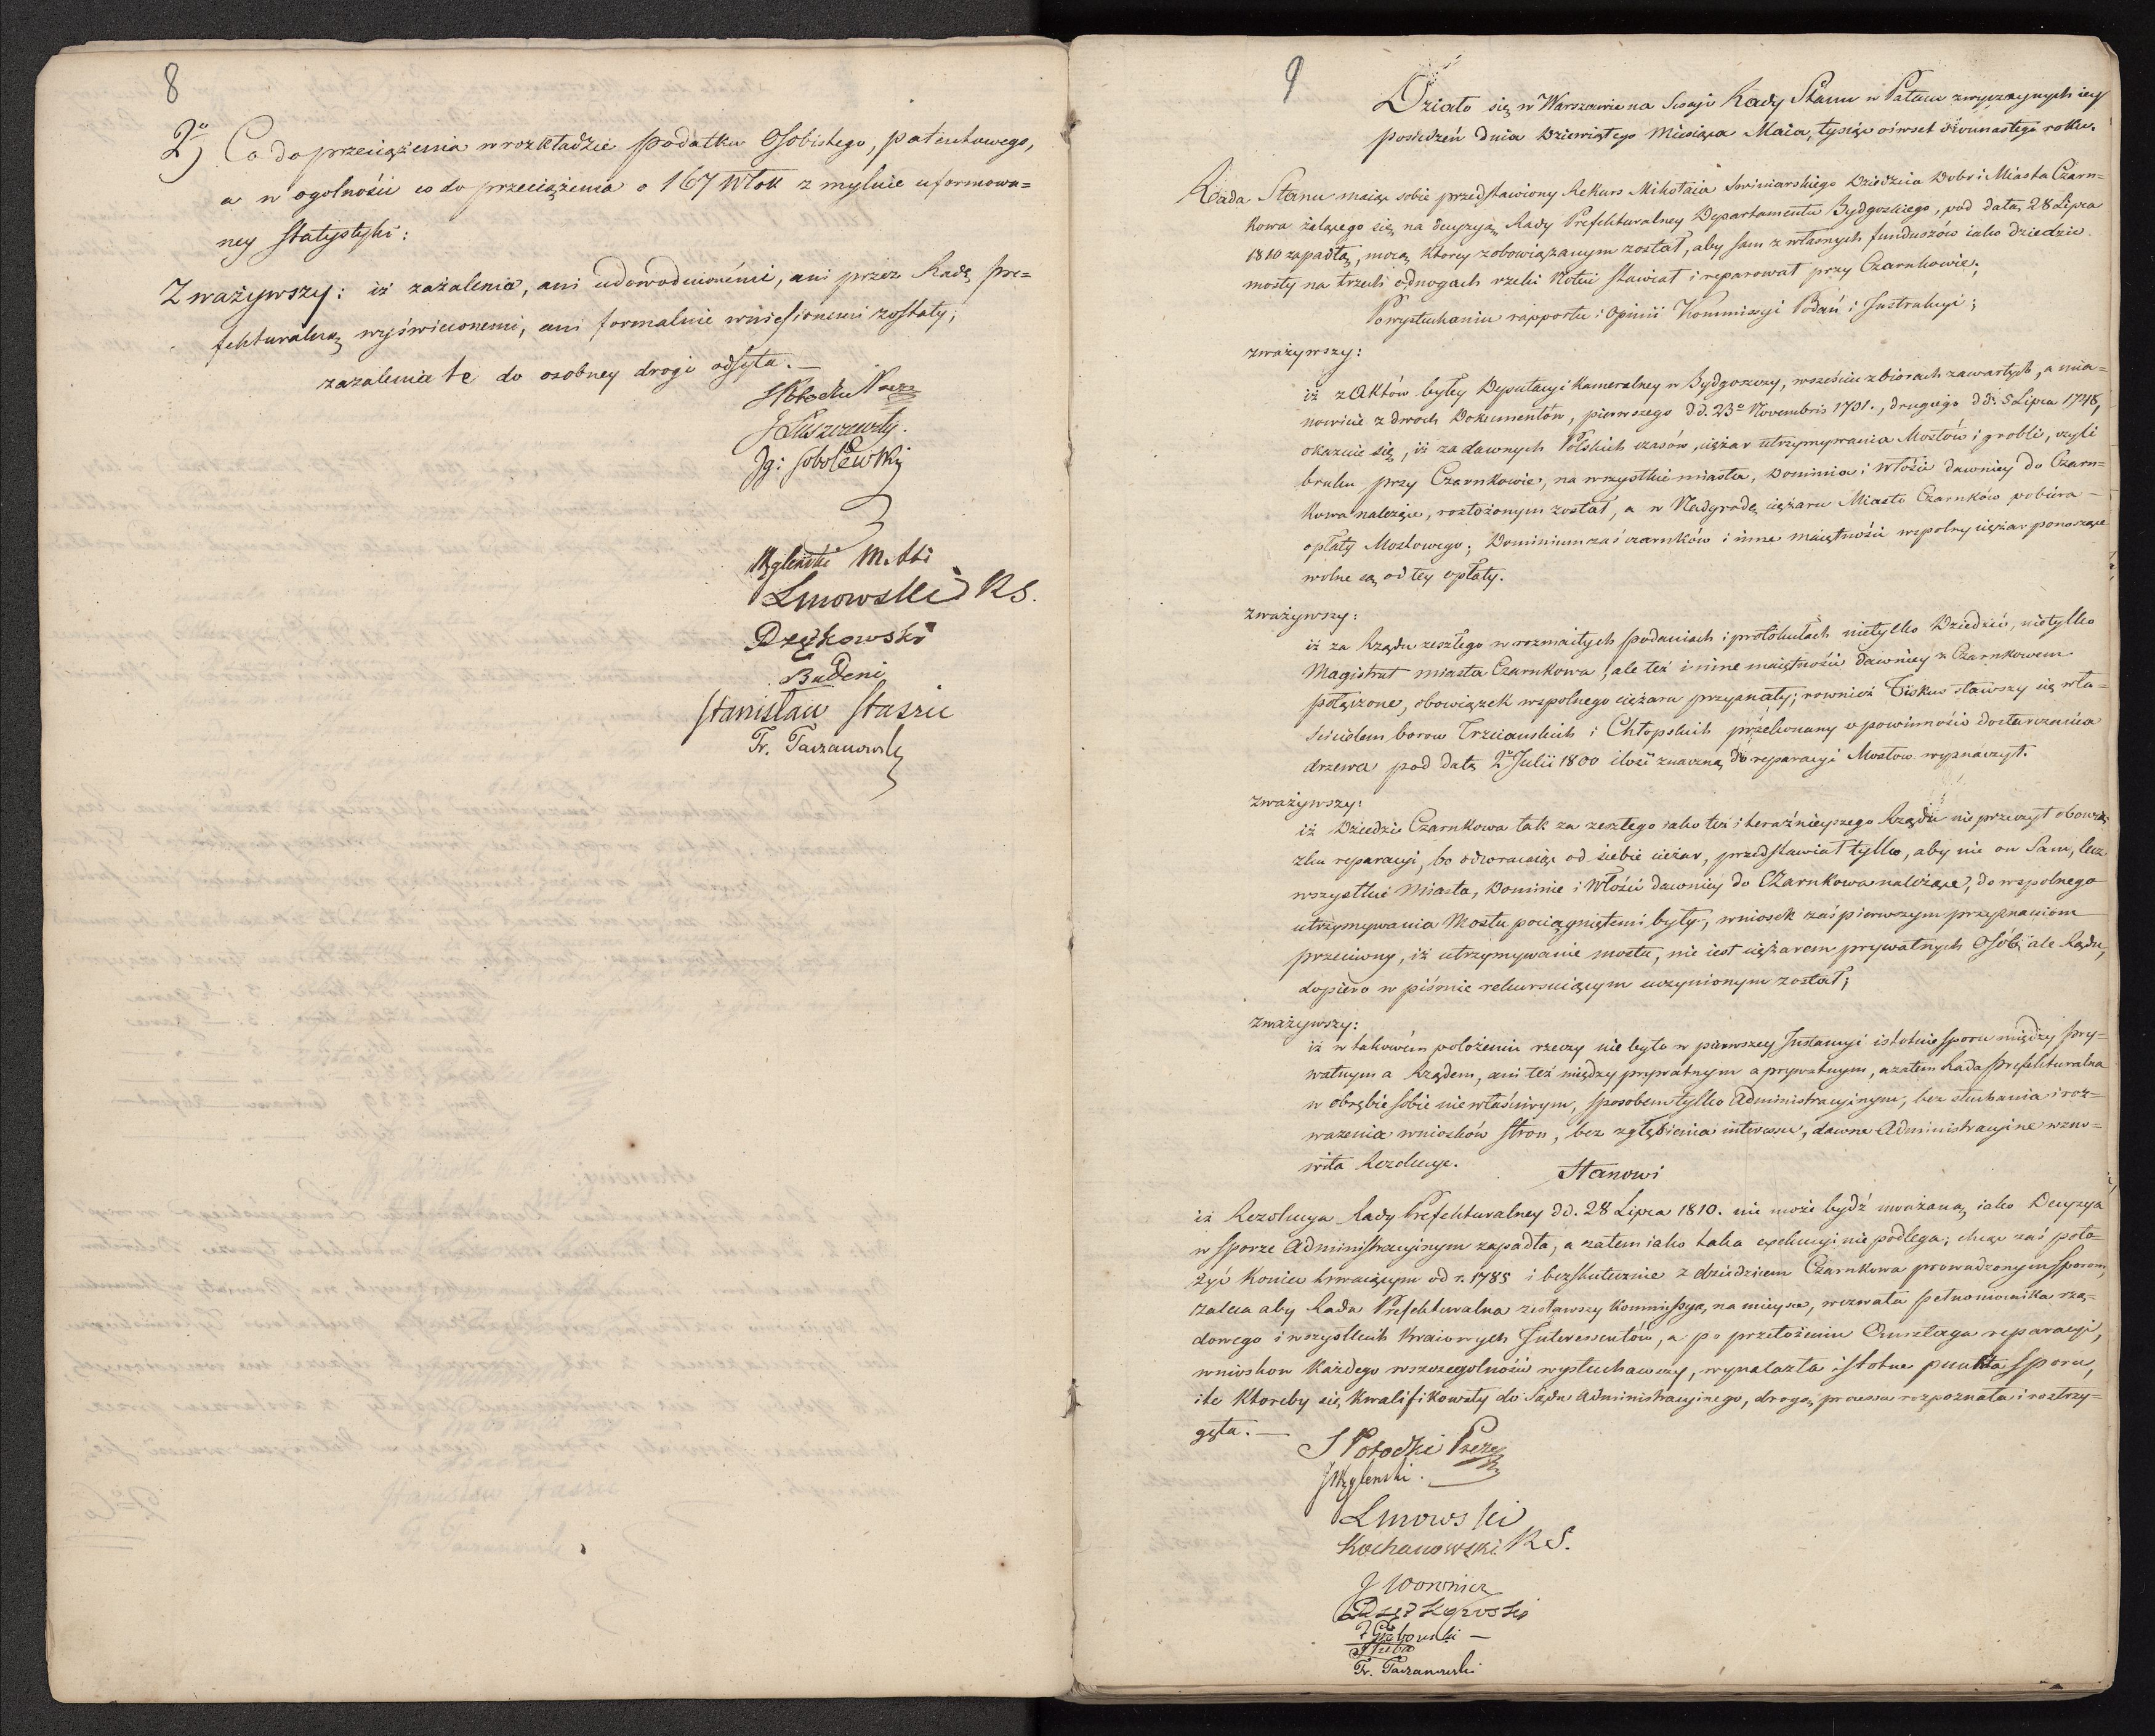 8
2o) Co do przeciążenia w rozkładzie podatku Osobistego, patentowego,
a w ogolności co do przeciążenia o 167 Włok z mylnie uformowa=
ney statystyki:
Zważywszy: iż zażalenia, ani udowodnionémi, ani przez Radę Pre=
fekturalną wyświeconemi, ani formalnie wniesionemi zostały;
zażalenia te do osobney drogi odsyła. —
S Potocki Prezes
J Łuszczewsky.
Ig: Sobolewsky
Węgleński M. Ski
Linowski RS.
Drzękowski
Badeni
Stanisław Staszic
Fr. Taczanowski
9
Działo się w Warszawie na Sessyi Rady Stanu w Pałacu zwyczaynych iey
posiedzeń dnia Dziewiątego Miesiąca Maia, tysiąc ośmset dwunastego roku.
Rada Stanu maiąc sobie przedstawiony Rekurs Mikołaia Swiniarskiego Dziedzica Dobr i Miasta Czarn=
kowa żalącego się na decyzyą Rady Prefekturalney Departamentu Bydgoskiego, pod datą 28 Lipca
1810 zapadłą, mocą ktorey zobowiązanym został, aby sam z własnych funduszów iako dziedzic
mosty na trzech odnogach rzeki Noteci stawiał i reparował przy Czarnkowie;
Po wysłuchaniu rapportu i Opinii Kommissyi Podań i Instrukcyi;
zważywszy:
iż z Aktów byłey Deputacyi Kameralney w Bydgoszczy, wsześciu zbiorach zawartych, a mia=
nowicie z dwoch Dokumentów, pierwszego dd. 23o Novembris 1701., drugiego dd. 5 Lipca 1748,
okazuie się, iż za dawnych Polskich czasów, ciężar utrzymywania Mostów i grobli, czyli
bruku przy Czarnkowie, na wszystkie miasta, Dominia i Włości dawniey do Czarn=
kowa należące, rozłożonym został, a w Nadgrodę ciężaru Miasto Czarnków pobiera
opłaty Mostowego; Dominium zaś czarnków i inne maiętności wspolny ciężar ponoszące
wolne są od tey opłaty.
zważywszy:
iż za Rządu zeszłego w rozmaitych podaniach i protokułach nietylko Dziedzic, nietylko
Magistrat miasta Czarnkowa, ale też i inne maiętności dawniey z Czarnkowem
połączone, obowiązek wspolnego ciężaru przyznały; rownież Fiskus stawszy się wła=
ścicielem borow Trzcianskich i Chłopskich przekonany o powinności dostarczania
drzewa pod datą 2o Julii 1800 ilość znaczną do reparacyi Mostow wyznaczył.
zważywszy:
iż Dziedzic Czarnkowa tak za zeszłego iako też i teraźnieyszego Rządu nie przeczył obowią
zku reparacyi, bo odwracaiąc od siebie ciężar, przedstawiał tylko, aby nie on Sam, lecz
wszystkie Miasta, Dominie i Włości dawniey do Czarnkowa należące, do wspolnego
utrzymywania Mostu pociągniętemi były; wniosek zaś pierwszym przyznaniom
przeciwny, iż utrzymywanie mostu, nie iest ciężarem prywatnych Osób, ale Rządu,
dopiero w piśmie rekursuiącym uczynionym został;
zważywszy:
iż w takowém położeniu rzeczy nie było w pierwszey Instancyi istotnie sporu między pry=
watnym a Rządem, ani też między prywatnym a prywatnym, a zatem Rada Prefekturalna
w obrębie sobie niewłaściwym, sposobem tylko Administracyinym, bez słuchania i roz=
ważenia wniosków stron, bez zgłębienia interessu, dawne Administracyine wzno=
wiła Rezolucye.
Stanowi
iż Rezolucya Rady Prefekturalney dd. 28 Lipca 1810. nie może bydź uważaną iako Decyzya
w sporze Administracyinym zapadła, a zatem iako taka exekucyi nie podlega; chcąc zaś poło=
żyć koniec trwaiącym od r. 1785 i bezskutecznie z dziedzicem Czarnkowa prowadzonym sporom,
zaleca aby Rada Prefekturalna zesławszy kommissyą na mieysce, wezwała pełnomocnika rzą=
dowego i wszystkich kraiowych Interessentów, a po przełożeniu Anszlagu reparacyi,
wniosków każdego wszczegolności wysłuchawszy, wynalazła istotne punkta sporu,
i te ktoreby się kwalifikowały do Sądu Administracyinego, drogą processu rozpoznała i rostrzy=
gęła. —
S Potocki Prezes
J Węgleński.
Linowski
Kochanowski RS.
J Woronicz
Drzękowski
Grabowski —
Fr. Taczanowski